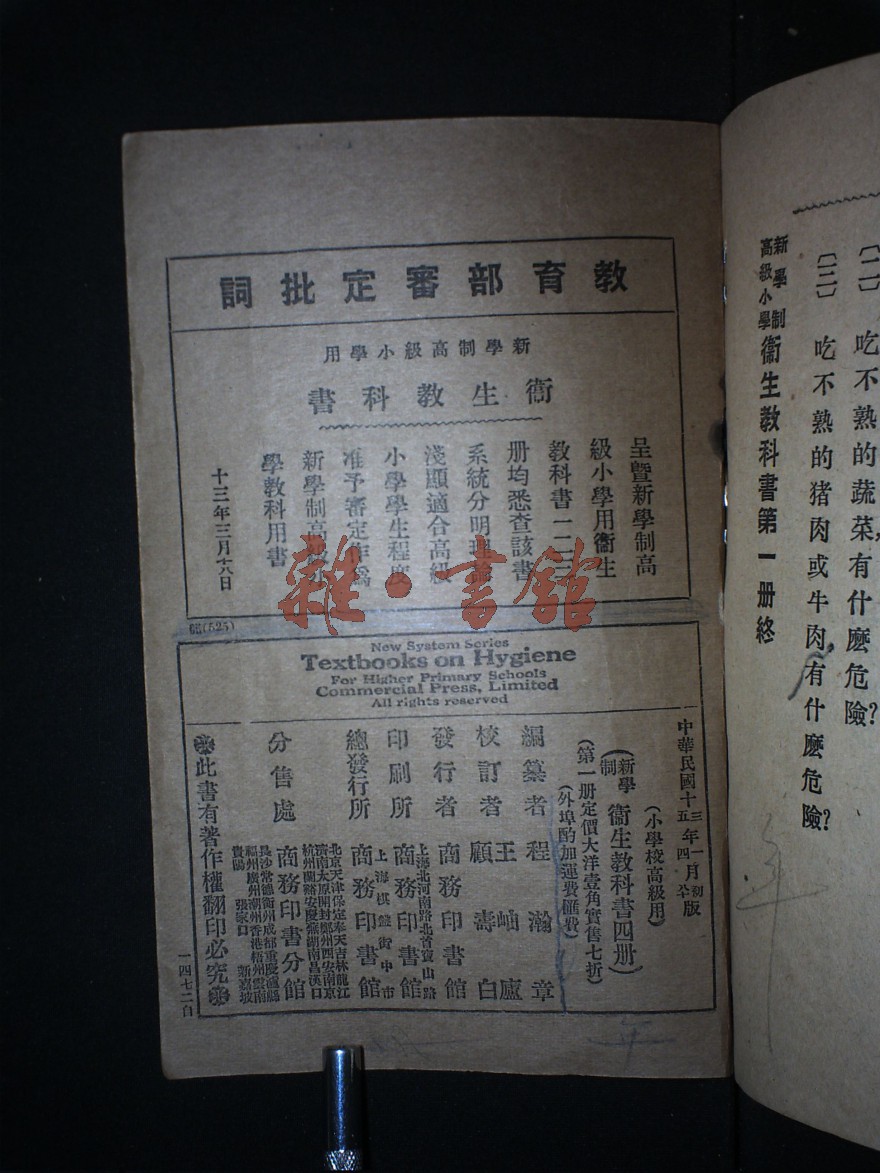 〔二〕　吃不熟的蔬菜，有什麽危險？
〔三〕　吃不熟的猪肉或牛肉，有什麽危險？
新學制高級小學衞生教科書第一册終
教育部審定批詞
新學制高級小學用
衞生教科書
呈曁新學制高
級小學用衞生
教科書一二三
册均悉查該書
系統分明理論
淺顯適合高級
小學學生程度
准予審定作爲
新學制高級小
學教科用書
十三年三月十八日
雜·書館
(525)
New System Series
Textbooks on Hygiene
For Higher Primary Schools
Commercial Press, Limited
All rights reserved
中華民國十三年一月初版
(小學校高級用)
(新學制)衞生教科書四册)
(第一册定價大洋壹角實售七折)
(外埠酌加運費匯費)
編纂者　程瀚章
校訂者　王岫廬　顧壽白
發行者　商務印書館
印刷所　上海北河南路北首寶山路　商務印書館
總發行所　上海棋盤街中市　商務印書館
分售處　北京天津保定奉天吉林龍江
濟南太原開封鄭州西安南京
杭州蘭谿安慶蕪湖南昌漢口
商務印書分館
長沙常德衡州成都重慶瀘縣
福州廣州潮州香港梧州雲南
貴陽　張家口　新嘉坡
此書有著作權翻印必究
一四七二白